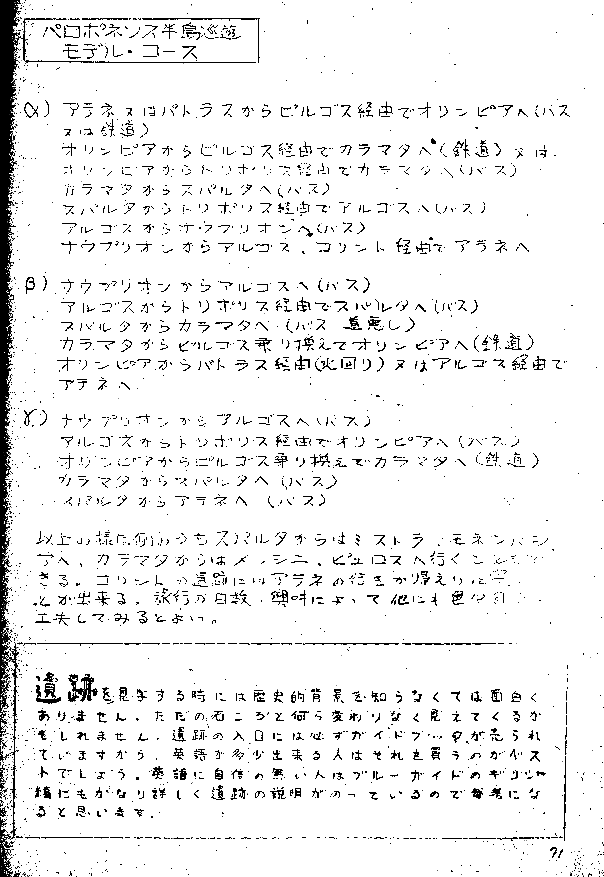 ペロポネソス半島巡遊
モデル・コース
α) アテネ又はパトラスからピルゴス経由でオリンピアへ(バス
又は鉄道)
オリンピアからピルゴス経由でカラマタへ(鉄道)又は
オリンピアからトリポリス経由でカラマタへ(バス)
カラマタからスパルタへ(バス)
スパルタからトリポリス経由でアルゴスへ(バス)
アルゴスからナウプリオンへ(バス)
ナウプリオンからアルゴス、コリント経由でアテネへ
β) ナウプリオンからアルゴスへ(バス)
アルゴスからトリポリス経由でスパルタへ(バス)
スパルタからカラマタへ(バス 直無し)
カラマタからピルゴス乗り換えでオリンピアへ(鉄道)
オリンピアからパトラス経由(北回り)又はアルゴス経由で
アテネへ
γ) ナウプリオンからアルゴスへ(バス)
アルゴスからトリポリス経由でオリンピアへ(バス)
オリンピアからピルゴス乗り換えでカラマタへ(鉄道)
カラマタからスパルタへ(バス)
スパルタからアテネへ(バス)
以上の様に スパルタからはミストラ、モネンバシ
アへ、カラマタからはメッシニ、ピュロスへ行くことがで
きる。コリントの遺跡にはアテネの行きか帰えりに
とが出来る。旅行の日数、興味によって他にも色々
工夫してみるとよい。
遺跡を見学する時には歴史的背景を知らなくては面白く
ありません。ただの石ころと何ら変わりなく見えてくるか
もしれません。遺跡の入口には必ずガイドブックが売られ
ていますから、英語が多少出来る人はそれを買うのがベス
トでしょう。英語に自信の無い人はブルーガイドのギリシャ
編にもかなり詳しく遺跡の説明がのっているので参考にな
ると思います。
71